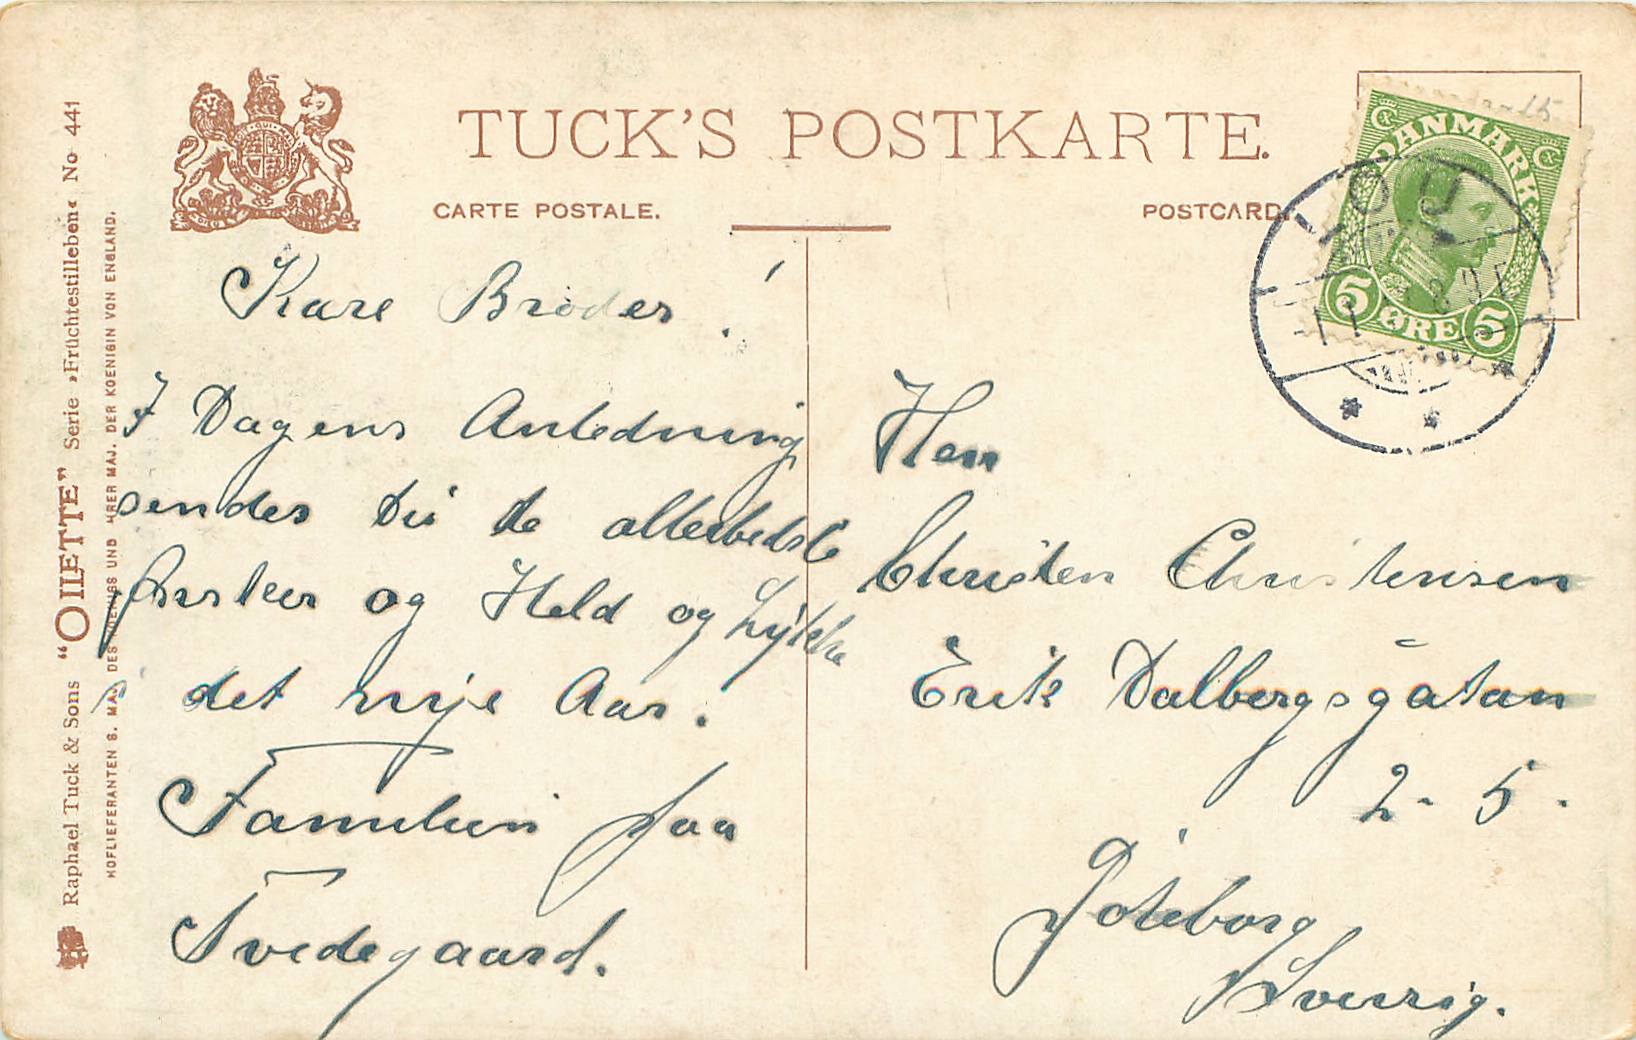 TUCK'S POSTKARTE.
CARTE POSTALE.
POSTCARD.
Raphael Tuck & Sons “OILETTE” Serie »Früchtestilleben« No 441
HOFLIEFERANTEN S. MAJ. DES KOENIGS UND IHRER MAJ. DER KOENIGIN VON ENGLAND.
DANMARK
5 ØRE 5
Kære Broder!
I Dagens Anledning
sendes Dig de allerbedste
Ønsker og Held og Lykke
i det nye Aar.
Familien paa
Tvedegaard.
Herr
Christen Christensen
Erik Dalbergsgatan
2-5.
Göteborg
Sverrig.